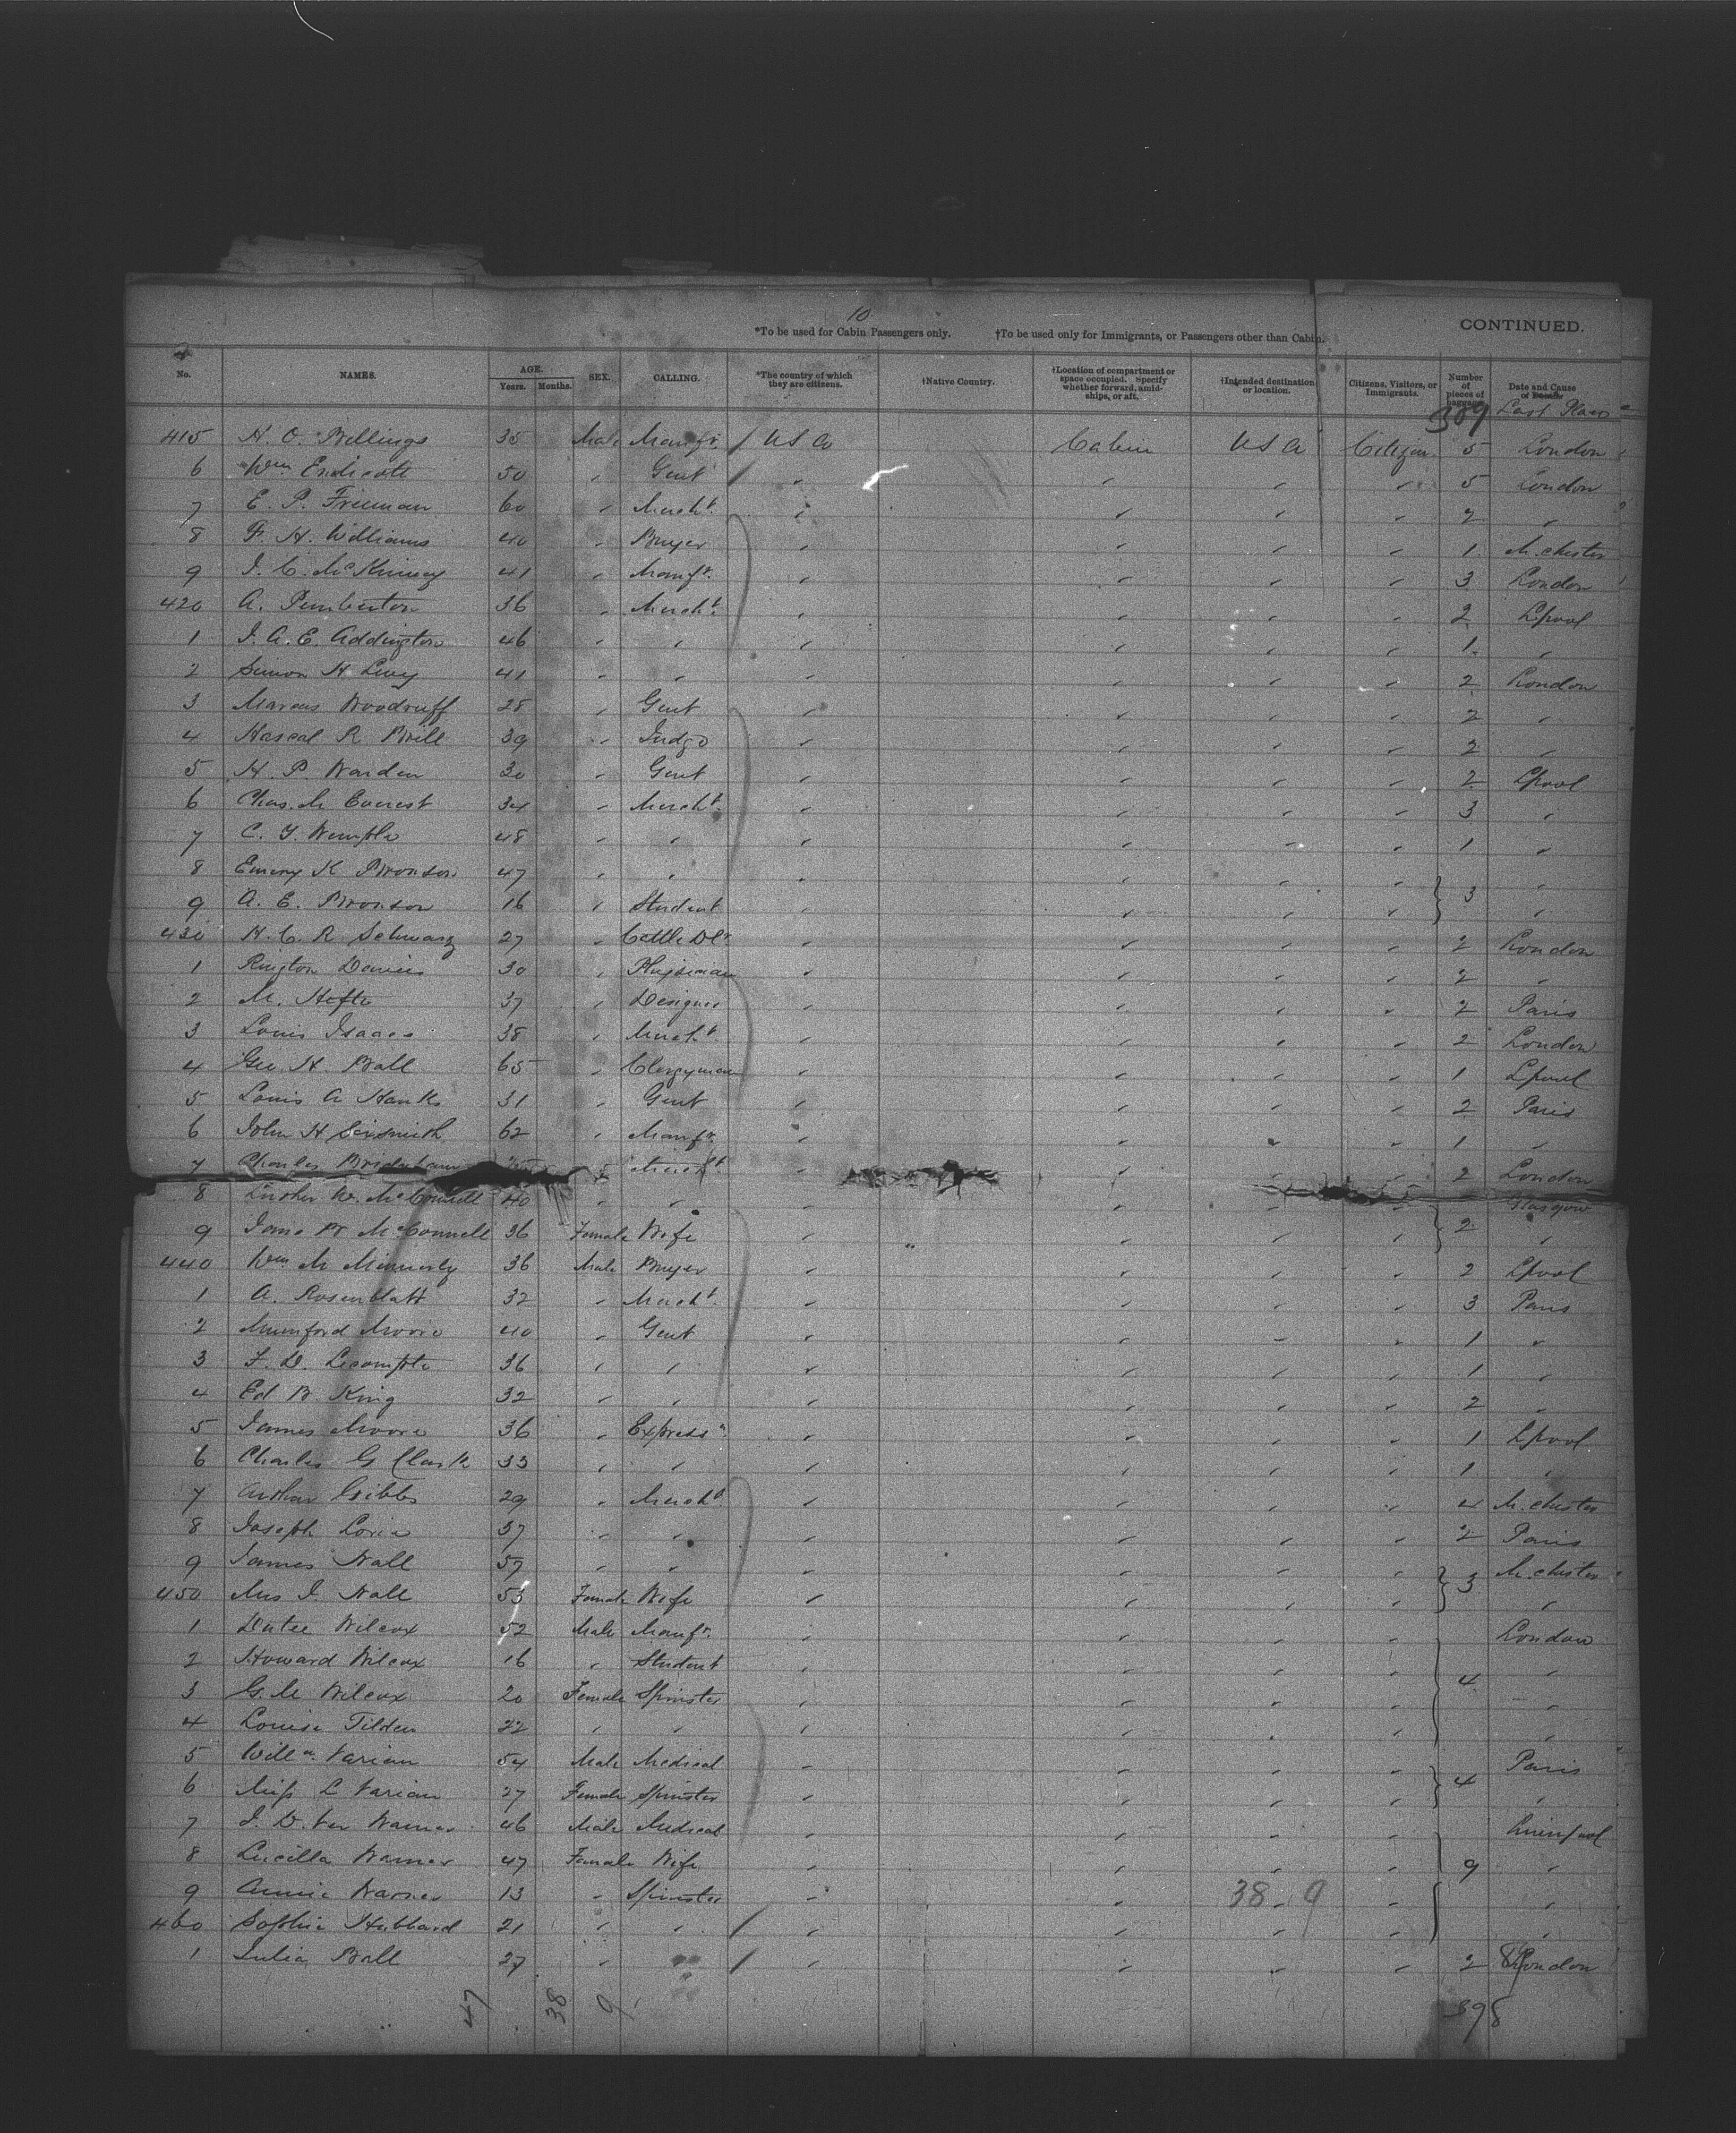 10
*To be used for Cabin Passengers only. †To be used only for Immigrants, or Passengers other than Cabin. CONTINUED.
No. NAMES. AGE. Years. Months. SEX. CALLING. *The country of which they are citizens. †Native Country. †Location of compartment or space occupied. Specify whether forward, amidships, or aft. †Intended destination or location. Citizens, Visitors, or Immigrants. Number of pieces of baggage Date and Cause of Death
389 Last Place
415 H. O. Billings 35 Male Manfr. / U S A Cabin U S A Citizen 5 London
6 Wm Endicott 50 " Gent / " " " " 5 London
7 E. P. Freeman 60 " Mercht. " " " " 2 "
8 F. H. Williams 40 " Buyer " " " " 1 M.chester
9 J. C. McKinney 41 " Manfr. " " " " 3 London
420 A. Pemberton 36 " Mercht. " " " " 2 Lpool
1 J. A. E. Addington 46 " " " " " " 1 "
2 Simon H Levy 41 " " " " " " 2 London
3 Marcus Woodruff 28 " Gent " " " " 2 "
4 Hascal R Brill 39 " Judge " " " " 2 "
5 H. P. Warden 30 " Gent " " " " 2 Lpool
6 Chas. M Everest 34 " Mercht. " " " " 3 "
7 C. Y. Wemple 48 " " " " " " 1 "
8 Emery K Bronson 47 " " " " " " 3 "
9 A. E. Bronson 16 " Student " " " " "
430 H. C. R Schwarz 27 " Cattle Dlr. " " " " 2 London
1 Davies 30 " Physician " " " " 2 "
2 M. Hefte 37 " Designer " " " " 2 Paris
3 Louis Isaacs 38 " Mercht. " " " " 2 London
4 Geo. H. Ball 65 " Clergyman " " " " 1 Lpool
5 Louis A Hanks 31 " Gent " " " " 2 Paris
6 John H Sixsmith 62 " Manfr. " " " " 1 "
7 Charles " Mercht " " " " 2 London
8 Luther W. McConnell 40 " " " " " " 2 Glasgow
9 Jane W McConnell 36 Female Wife " " " " "
440 Wm M Minnerly 36 Male Buyer " " " " 2 Lpool
1 A. Rosenblatt 32 " Mercht. " " " " 3 Paris
2 Mumford Moore 40 " Gent " " " " 1 "
3 F. D. Lecompte 36 " " " " " " 1 "
4 Ed B. King 32 " " " " " " 2 "
5 James Moore 36 " Express " " " " 1 Lpool
6 Charles G Clark 33 " " " " " " 1 "
7 Arthur Gibbs 29 " Mercht. " " " " 4 M.chester
8 Joseph Loria 37 " " " " " " 2 Paris
9 James Hall 57 " " " " " " 3 M.chester
450 Mrs J. Hall 53 Female Wife " " " " "
1 Dutee Wilcox 52 Male Manfr. " " " " London
2 Howard Wilcox 16 " Student " " " " 4 "
3 G. M Wilcox 20 Female Spinster " " " " "
4 Louise Tilden 22 " " " " " " "
5 Willm. Varian 54 Male Medical " " " " 4 Paris
6 Miss L Varian 27 Female Spinster " " " " "
7 J. D. Ver Warner 46 Male Medical " " " " Liverpool
8 Lucilla Warner 47 Female Wife " " " " 9 "
9 Annie Warner 13 " Spinster " " 38 - 9 " "
460 Sophia Hubbard 21 " " / " " " " "
1 Julia Ball 27 " " / " " " " 2 London
47 38 9 398